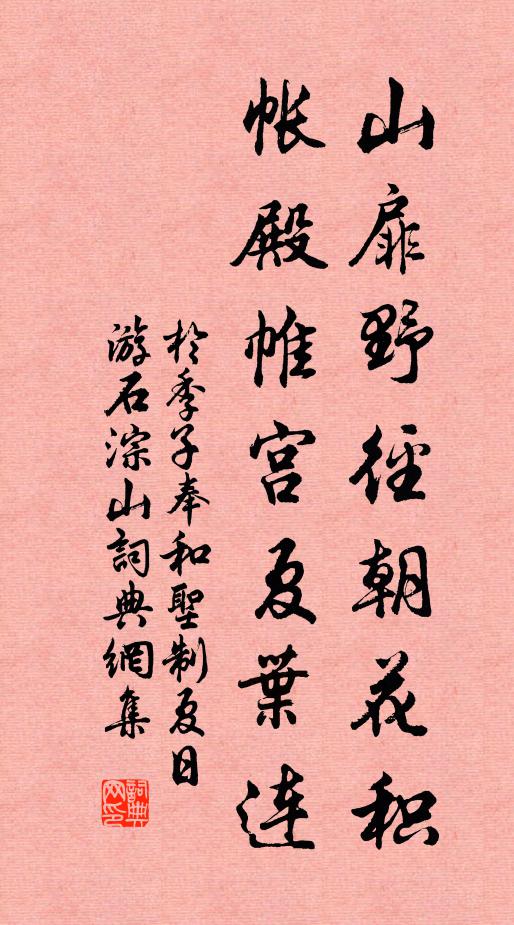 山扉野径朝花积
帐殿帷宫夏葉连
於季子奉和聖制夏日
游石淙山詞典網集
詞典
网印